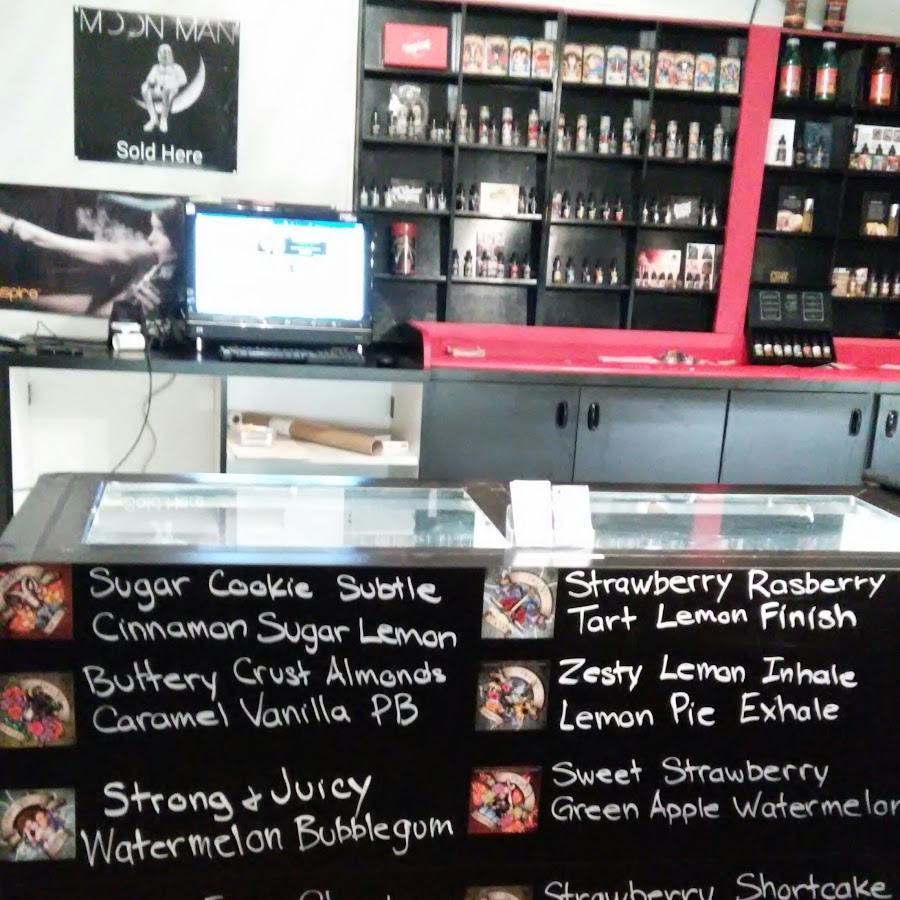 MOON MAN
Sold Here
spire
Sugar Cookie Subtle
Cinnamon Sugar Lemon
Buttery Crust Almonds
Caramel Vanilla PB
Strong & Juicy
Watermelon Bubblegum
Strawberry Rasberry
Tart Lemon Finish
Zesty Lemon Inhale
Lemon Pie Exhale
Sweet Strawberry
Green Apple Watermelon
Strawberry Shortcake